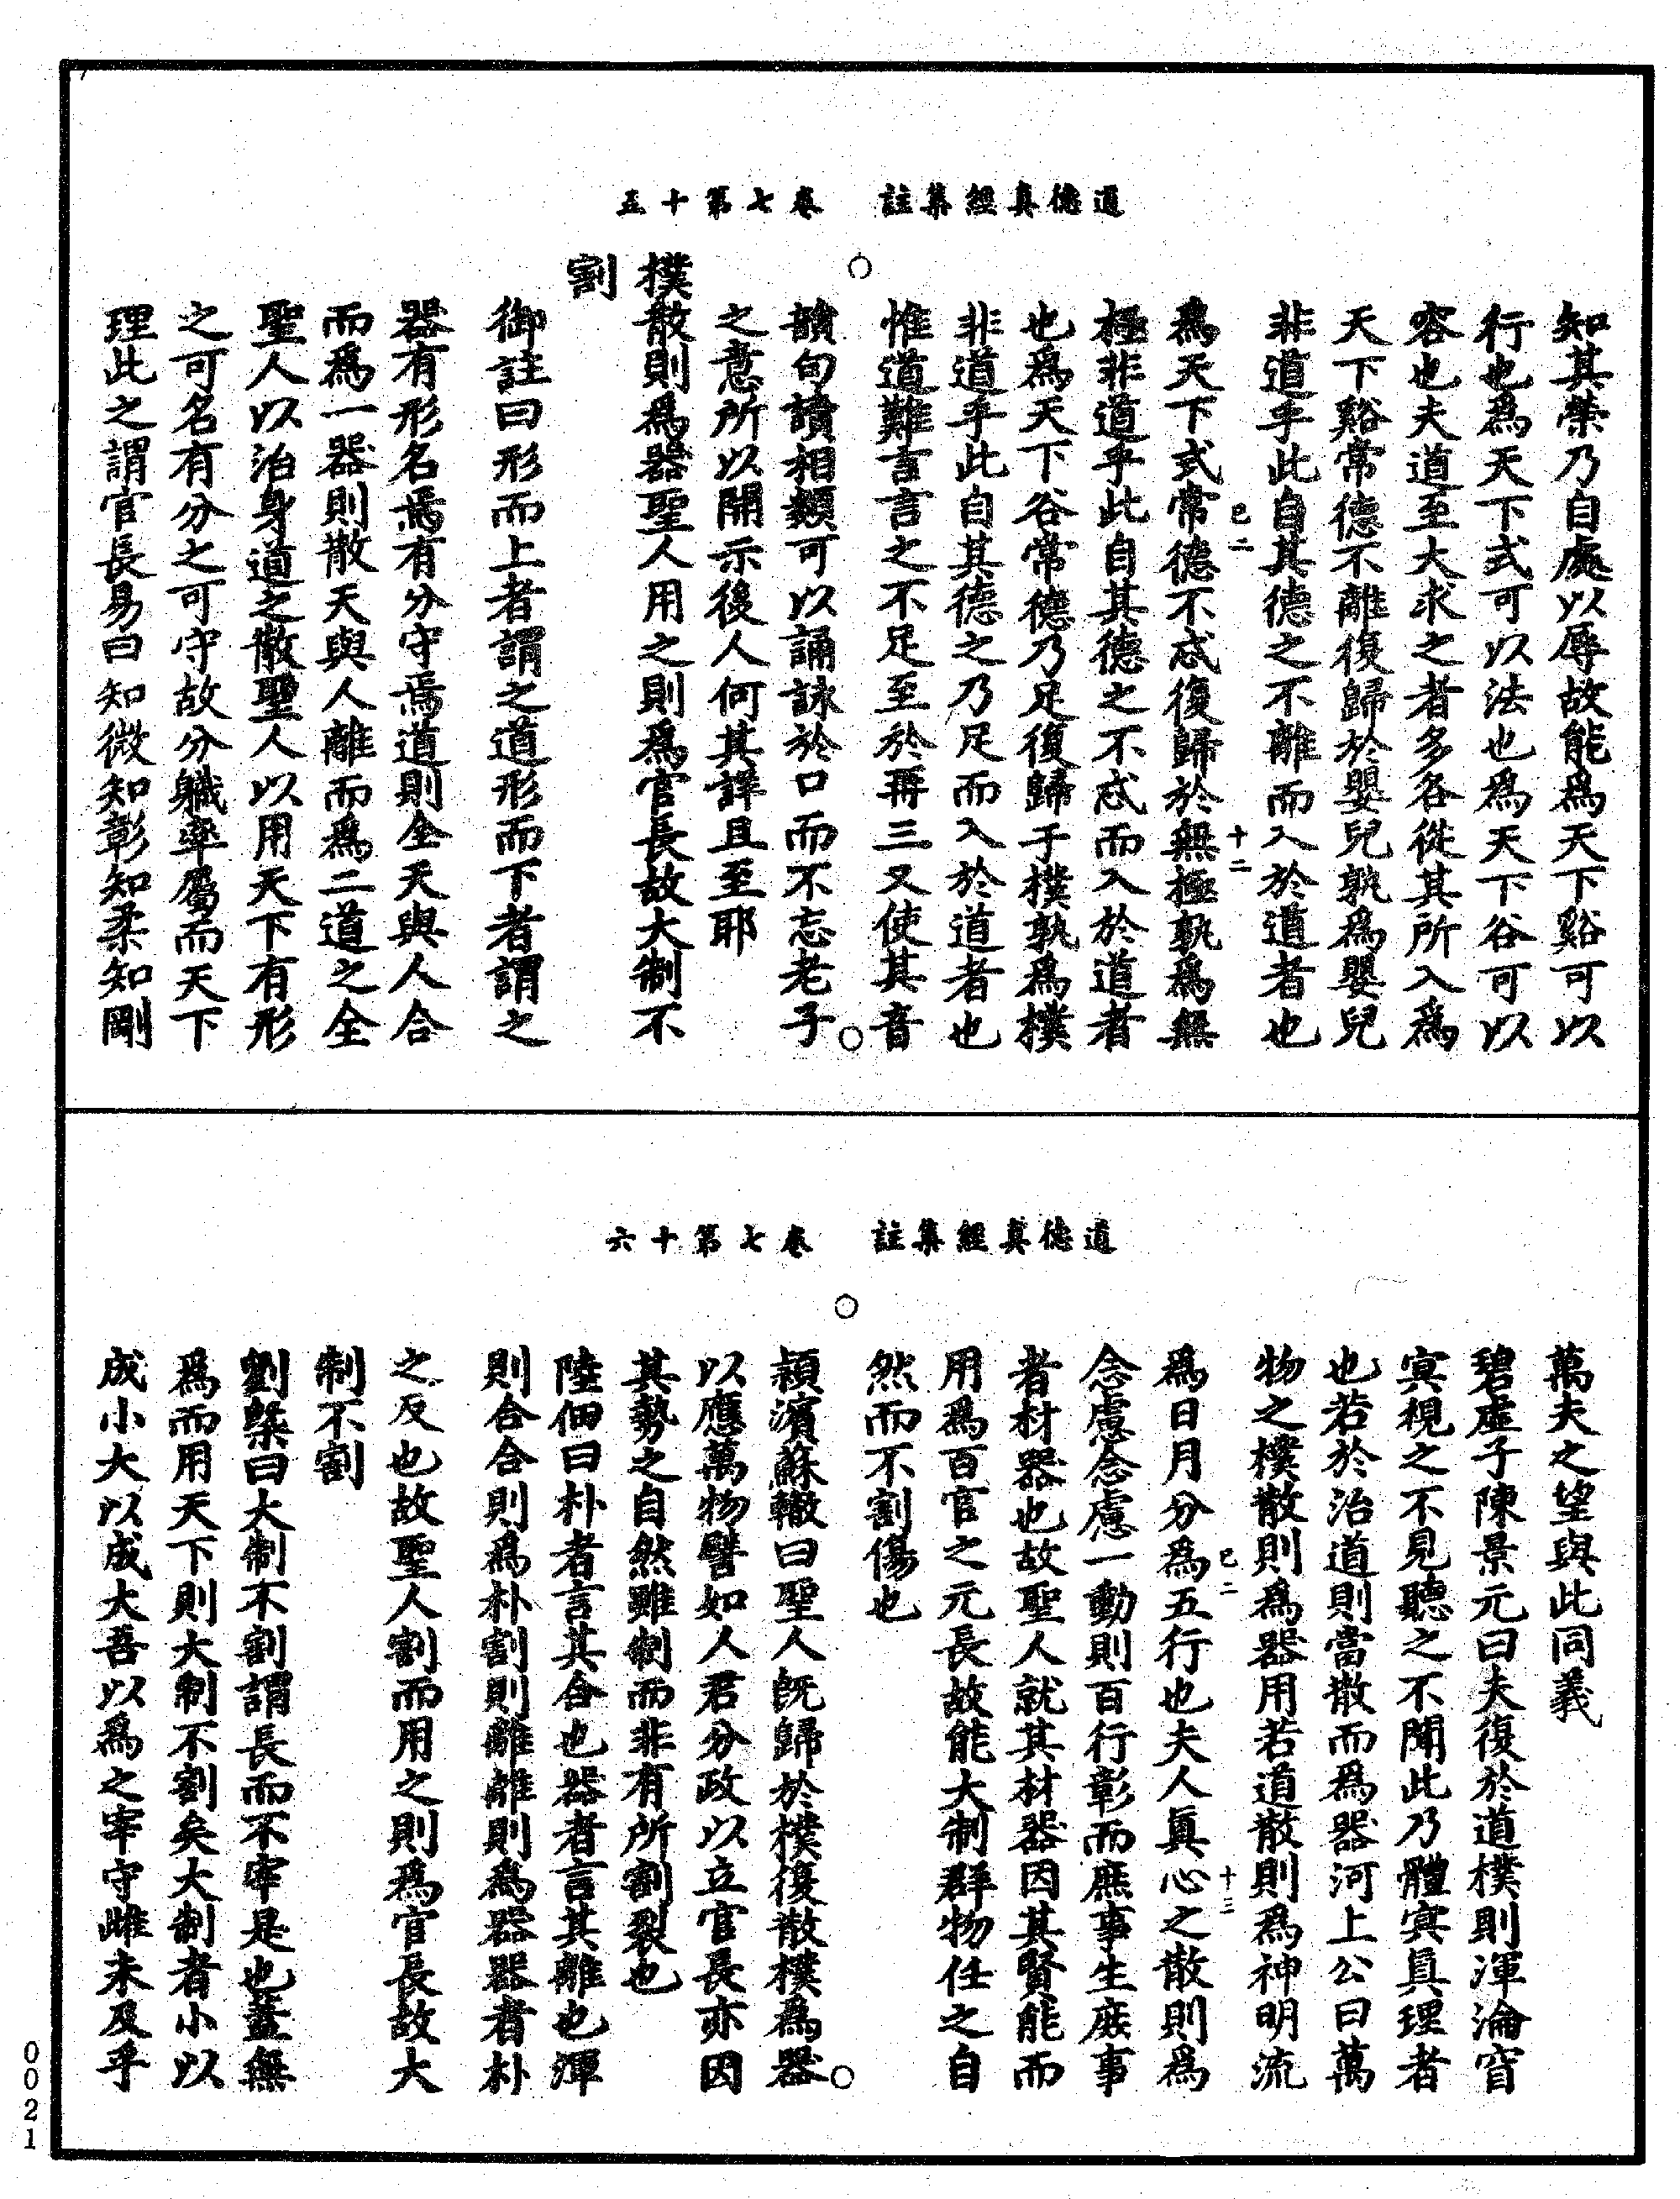 道德真經集註　卷七第十五
知其榮乃自處以辱故能為天下谿可以
行也為天下式可以法也為天下谷可以
容也夫道至大求之者多各從其所入為
天下谿常德不離復歸於嬰兒孰為嬰兒
非道乎此自其德之不離而入於道者也
已二　十二
為天下式常德不忒復歸於無極孰為無
極非道乎此自其德之不忒而入於道者
也為天下谷常德乃足復歸于樸孰為樸
非道乎此自其德之乃足而入於道者也
惟道難言言之不足至於再三又使其音
韻句讀相類可以誦詠於口而不忘老子
之意所以開示後人何其詳且至耶
樸散則為器聖人用之則為官長故大制不
割
御註曰形而上者謂之道形而下者謂之
器有形名焉有分守焉道則全天與人合
而為一器則散天與人離而為二道之全
聖人以治身道之散聖人以用天下有形
之可名有分之可守故分職率屬而天下
理此之謂官長易曰知微知彰知柔知剛
道德真經集註　卷七第十六
萬夫之望與此同義
碧虛子陳景元曰夫復於道樸則渾淪窅
冥視之不見聽之不聞此乃體冥真理者
也若於治道則當散而為器河上公曰萬
物之樸散則為器用若道散則為神明流
已二　十三
為日月分為五行也夫人真心之散則為
念慮念慮一動則百行彰而庶事生庶事
者材器也故聖人就其材器因其賢能而
用為百官之元長故能大制群物任之自
然而不割傷也
潁濱蘇轍曰聖人既歸於樸復散樸為器
以應萬物譬如人君分政以立官長亦因
其勢之自然雖制而非有所割裂也
陸佃曰朴者言其合也器者言其離也渾
則合合則為朴割則離離則為器器者朴
之反也故聖人割而用之則為官長故大
制不割
劉槩曰大制不割謂長而不宰是也蓋無
為而用天下則大制不割矣大制者小以
成小大以成大吾以為之宰守雌未及乎
0021